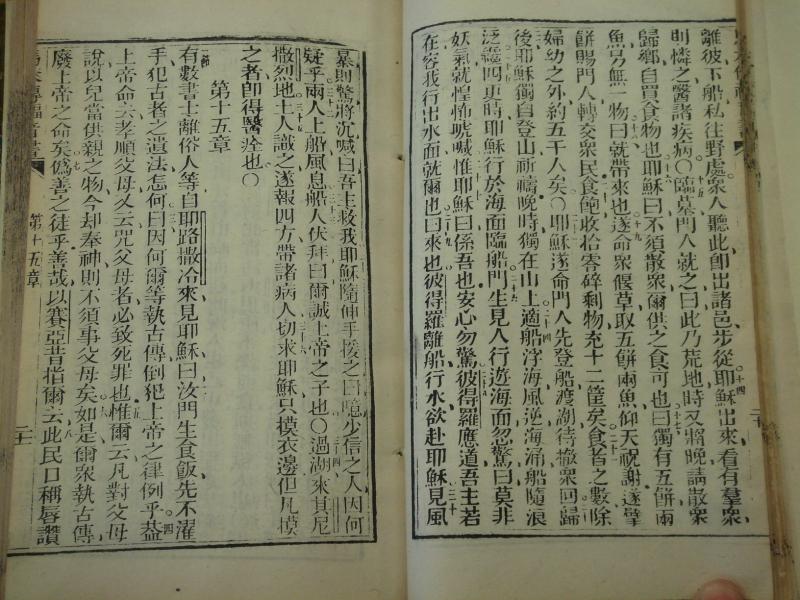 離彼下船私往野處衆人聽此卽出諸邑步從耶穌出來看有羣衆
則憐之醫諸疾病〇臨暮門人就之曰此乃荒地時又將晚請散衆
歸鄉自買食物也耶穌曰不須散衆爾供之食可也曰獨有五餅兩
魚另無一物曰就帶來也遂命衆偃草取五餅兩魚仰天祝謝遂擘
餅賜門人轉交衆民食飽收拾零碎剩物充十二筐矣食者之數除
婦幼之外約五千人矣〇耶穌遂命門人先登船渡湖待撤衆回歸
後耶穌獨自登山祈禱晚時獨在山上適船浮海風逆海涌船隨浪
泛四更時耶穌行於海面臨船門生見人行遊海面忽驚曰莫非
妖氣就惶怖唬喊惟耶穌曰係吾也安心勿驚彼得羅應道吾主若
在容我行出水面就爾也曰來也彼得羅離船行水欲赴耶穌見風
暴則驚將沉喊曰吾主救我耶穌隨伸手援之曰噫少信之人因何
疑乎兩人上船風息船人伏拜曰爾誠上帝之子也〇過湖來其尼
撒烈地土人識之遂報四方帶諸病人切求耶穌只摸衣邊但凡摸
之者卽得醫痊也〇
第十五章
一節
有數書士離俗人等自耶路撒冷來見耶穌曰汝門生食飯先不濯
手犯古者之遺法怎何曰因何爾等執古傳倒犯上帝之律例乎蓋
上帝命云孝順父母又云咒父母者必致死罪也惟爾云凡對父母
說以兒當供親之物今却奉神則不須事父母矣如是爾衆執古傳
廢上帝之命矣僞善之徒乎善哉以賽亞昔指爾云此民口稱唇讚
第十五章